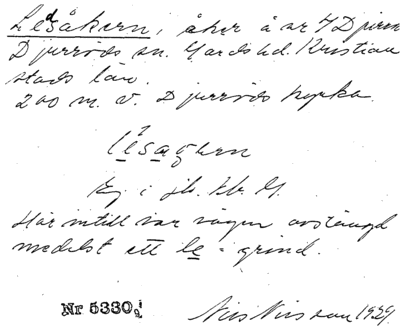 Ledsåkern, åker å nr 7 Djurröd
Djurröds sn. Gärds hd. Kristian
stads län.
200 m. v. Djurröds kyrka.
lésagern
Ej i jb. Hr. G.
Här intill var vägen avstängd
medelst ett le = grind.
Nr 5330
Nils Nilsson 1929.